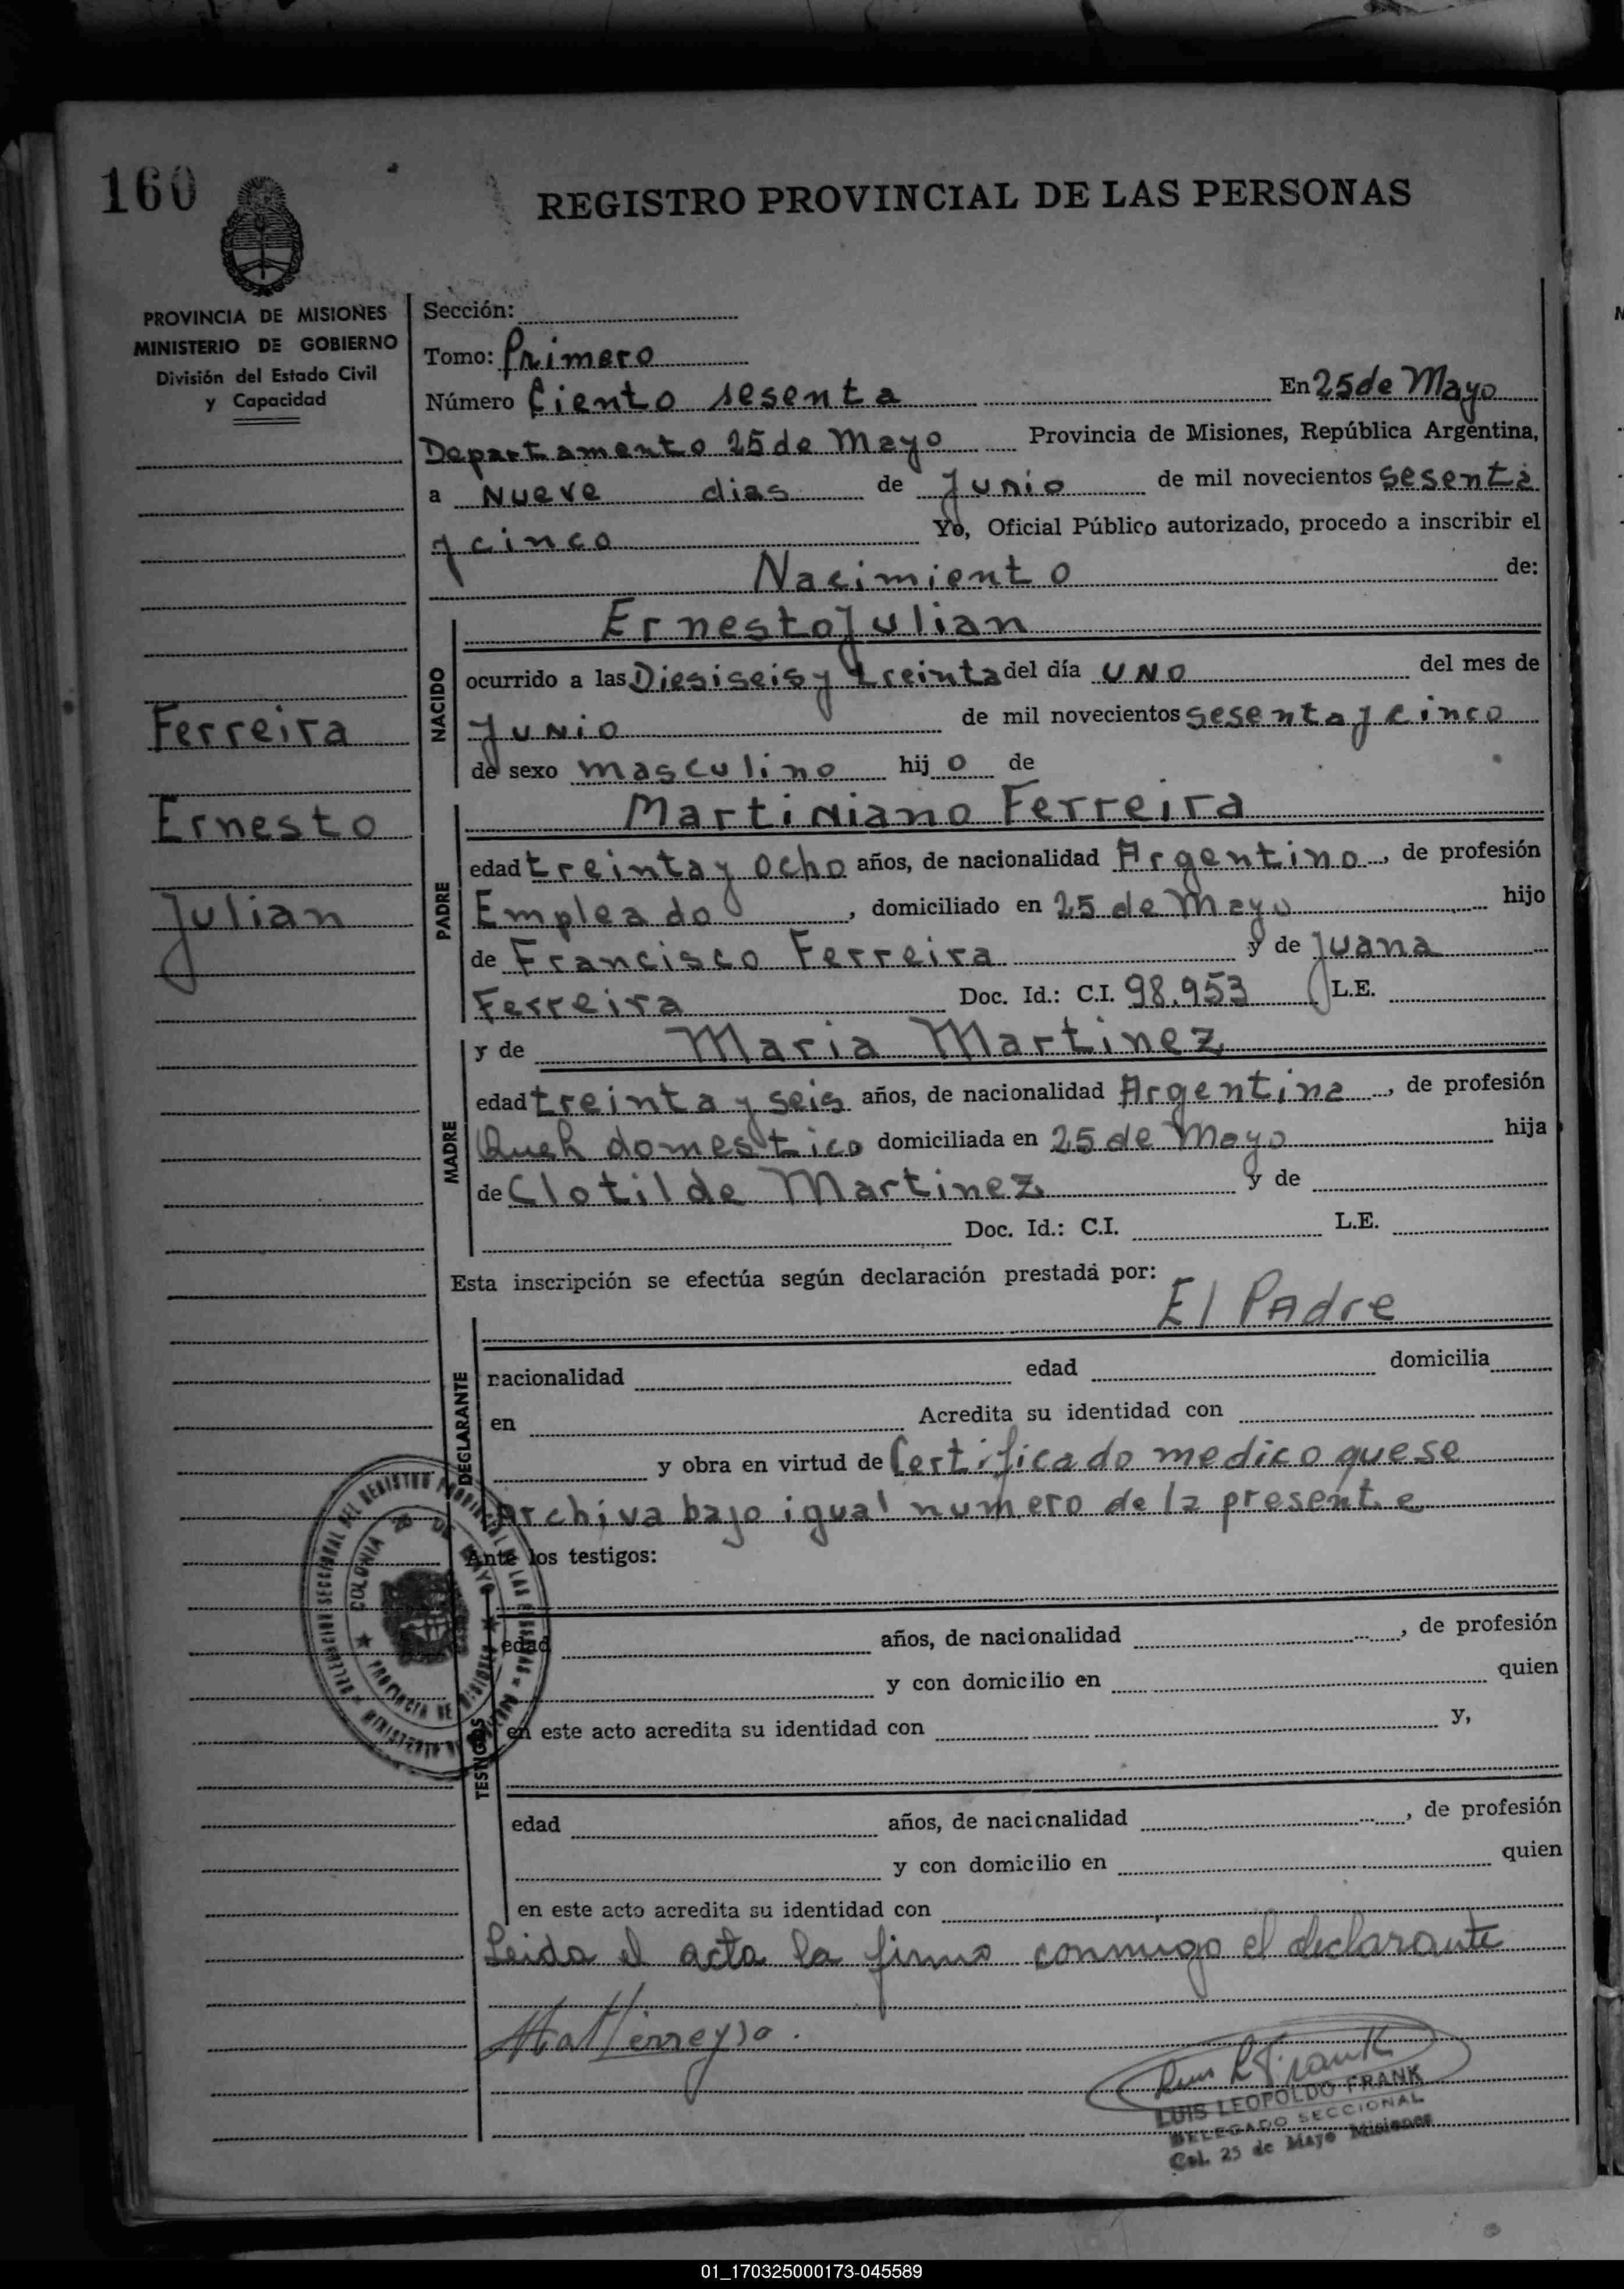 160
REGISTRO PROVINCIAL DE LAS PERSONAS
PROVINCIA DE MISIONES
MINISTERIO DE GOBIERNO
División del Estado Civil
y Capacidad
Ferreira
Ernesto
Julian
Sección:
Tomo: Primero
Número Ciento sesenta En 25 de Mayo
Departamento 25 de Mayo Provincia de Misiones, República Argentina,
a Nueve dias de Junio de mil novecientos sesenta
y cinco Yo, Oficial Público autorizado, procedo a inscribir el
Nacimiento de:
NACIDO
Ernesto Julian
ocurrido a las Diesiseis y treinta del día UNO del mes de
Junio de mil novecientos sesenta y cinco
de sexo masculino hij o de
PADRE
Martiniano Ferreira
edad treinta y ocho años, de nacionalidad Argentino, de profesión
Empleado, domiciliado en 25 de Mayo hijo
de Francisco Ferreira y de Juana
Ferreira Doc. Id.: C.I. 98.953 L.E.
MADRE
y de Maria Martinez
edad treinta y seis años, de nacionalidad Argentina, de profesión
Queh domestico domiciliada en 25 de Mayo hija
de Clotilde Martinez y de
Doc. Id.: C.I. L.E.
Esta inscripción se efectúa según declaración prestada por:
El Padre
DECLARANTE
nacionalidad edad domicilia
en Acredita su identidad con
y obra en virtud de Certificado medico que se
Archiva bajo igual numero de la presente
Ante los testigos:
TESTIGOS
edad años, de nacionalidad , de profesión
y con domicilio en quien
en este acto acredita su identidad con y,
edad años, de nacionalidad , de profesión
y con domicilio en quien
en este acto acredita su identidad con
Leida el acta la firma conmigo el declarante
DELEGACION SECCIONAL DEL REGISTRO PROVINCIAL DE LAS PERSONAS
COLONIA 25 DE MAYO
PROVINCIA DE MISIONES
Luis L Frank
LUIS LEOPOLDO FRANK
DELEGADO SECCIONAL
Col. 25 de Mayo Misiones
01_170325000173-045589